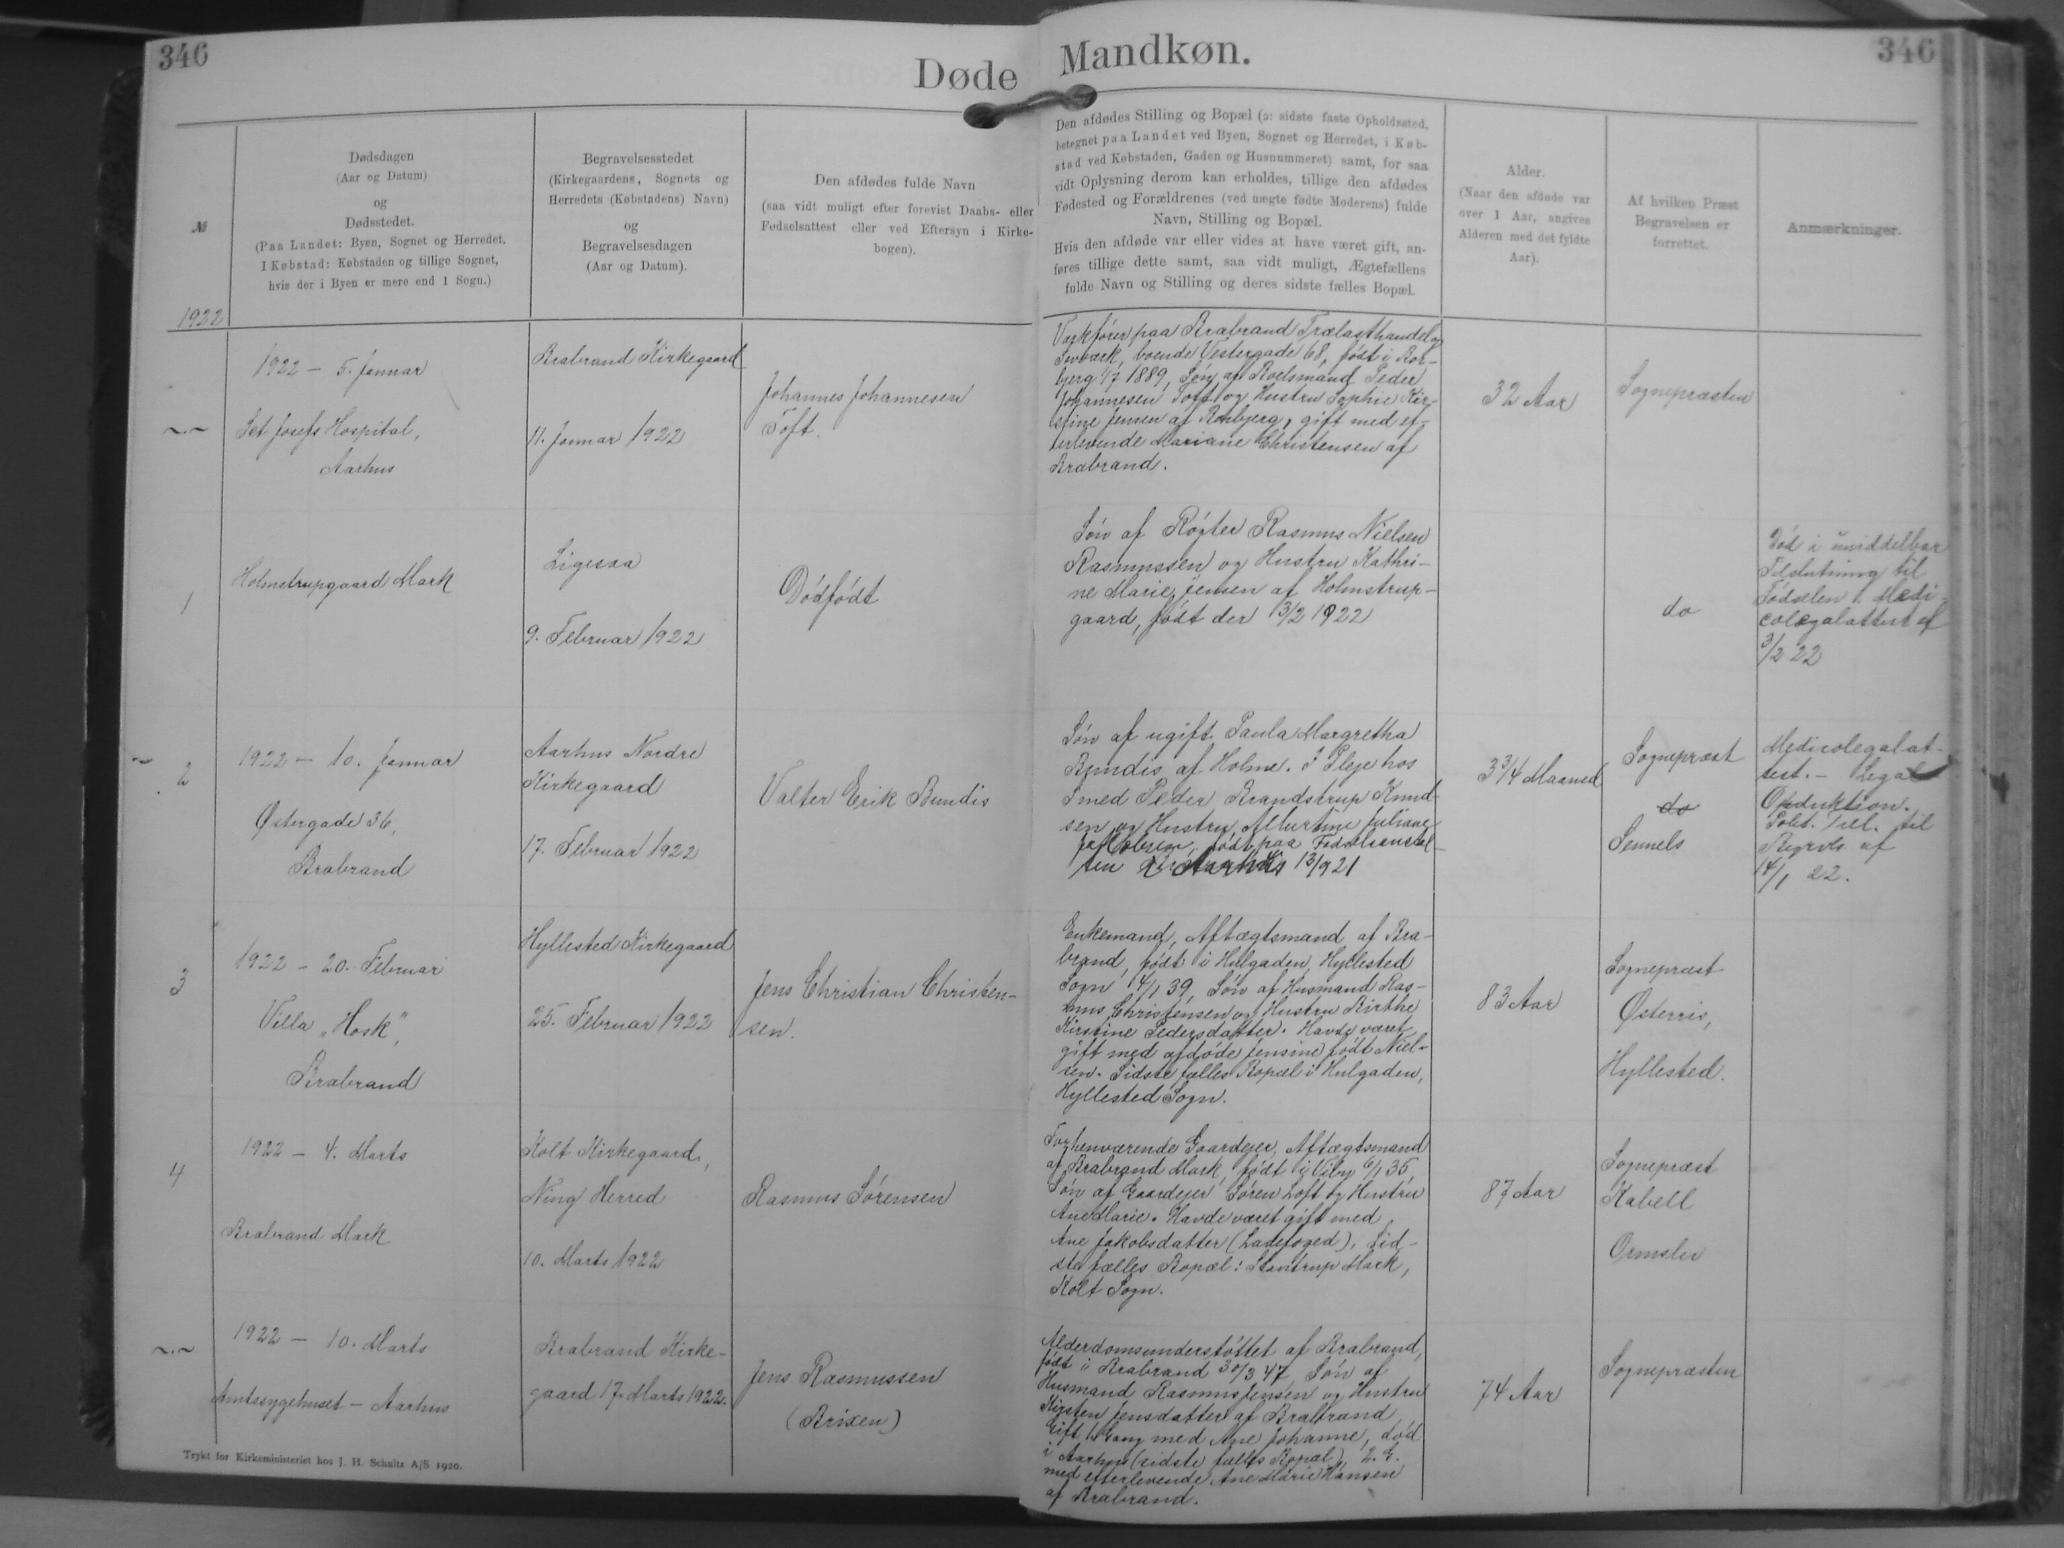 346
Døde
Mandkøn.
346
№
1922
Dødsdagen
(Aar og Datum)
og
Dødsstedet.
(Paa Landet: Byen, Sognet og Herredet,
I Købstad: Købstaden og tillige Sognet,
hvis der i Byen er mere end 1 Sogn.)
Begravelsesstedet
(Kirkegaardens, Sognets og
Herredets (Købstadens) Navn)
og
Begravelsesdagen
(Aar og Datum).
Den afdødes fulde Navn
(saa vidt muligt efter forevist Daabs- eller
Fødselsattest eller ved Eftersyn i Kirke-
bogen).
Den afdødes Stilling og Bopæl (ɔ: sidste faste Opholdssted,
betegnet paa Landet ved Byen, Sognet og Herredet, i Køb-
stad ved Købstaden, Gaden og Husnummeret) samt, for saa
vidt Oplysning derom kan erholdes, tillige den afdødes
Fødested og Forældrenes (ved uægte fødte Moderens) fulde
Navn, Stilling og Bopæl.
Hvis den afdøde var eller vides at have været gift, an-
føres tillige dette samt, saa vidt muligt, Ægtefællens
fulde Navn og Stilling og deres sidste fælles Bopæl.
Alder.
(Naar den afdøde var
over 1 Aar, angives
Alderen med det fyldte
Aar).
Af hvilken Præst
Begravelsen er
forrettet.
Anmærkninger.
~.~
1922 – 5. Januar
Sct Josefs Hospital,
Aarhus
Brabrand Kirkegaard
11. Januar 1922
Johannes Johannesen
Toft.
Værkfører paa Brabrand Trælasthandel og
Savværk, boende Vestergade 68, født i Ror-
bjerg 1/7 1889, Søn af Boelsmand Peder
Johannesen Toft og Hustru Sophie Kir-
stine Jensen af Rorbjerg, gift med ef-
terlevende Mariane Christensen af
Brabrand.
32 Aar
Sognepræsten
1
Holmstrupgaard Mark
Ligesaa
9. Februar 1922
Dødfødt
Søn af Røgter Rasmus Nielsen
Rasmussen og Hustru Kathri-
ne Marie Jensen af Holmstrup-
gaard, født der 3/2 1922
do
Død i umiddelbar
Tilslutning til
Fødselen. Medi-
colegalattest af
3/2 22
2
1922 – 10. Januar
Østergade 36,
Brabrand
Aarhus Nordre
Kirkegaard
17. Februar 1922
Valter Erik Bundis
Søn af ugift Paula Margretha
Bundis af Holme. I Pleje hos
Smed Peder Brandstrup Knud-
sen og Hustru Albertine Juliane
født paa Fødselsanstal-
ten Aarhus 13/9 21
3 3/4 Maaned
Sognepræst
do
Sennels
Medicolegalat-
test. – Legal
Obduktion.
Polit. Till. til
Begrvls. af
14/1 22.
3
1922 – 20. Februar
Villa „Hosk",
Brabrand
Hyllested Kirkegaard
25. Februar 1922
Jens Christian Christen-
sen.
Enkemand, Aftægtsmand af Bra-
brand, født i Hulgaden, Hyllested
Sogn 14/1 39, Søn af Husmand Ras-
mus Christensen og Hustru Birthe
Kirstine Pedersdatter. Havde været
gift med afdøde Jensine født Niel-
sen. Sidste fælles Bopæl i Hulgaden,
Hyllested Sogn.
83 Aar
Sognepræst
Østerris,
Hyllested.
4
1922 – 4. Marts
Brabrand Mark
Kolt Kirkegaard,
Ning Herred
10. Marts 1922
Rasmus Sørensen
Forhenværende Gaardejer, Aftægtsmand
af Brabrand Mark, født i Viby 6/1 35
Søn af Gaardejer Søren Loft og Hustru
Ane Marie. Havde været gift med
Ane Jakobsdatter (Ladefoged). Sid-
ste fælles Bopæl: Stautrup Mark,
Kolt Sogn.
87 Aar
Sognepræst
Kabell
Ormslev
~.~
1922 – 10. Marts
Amtssygehuset – Aarhus
Brabrand Kirke-
gaard 17. Marts 1922.
Jens Rasmussen
(Brixen)
Alderdomsunderstøttet af Brabrand,
født i Brabrand 30/3 47, Søn af
Husmand Rasmus Jensen og Hustru
Kirsten Jensdatter af Brabrand
Gift 1. Gang med Ane Johanne, død
i Aarhus (sidste fælles Bopæl), 2. G.
med efterlevende Ane Marie Hansen
af Brabrand.
74 Aar
Sognepræsten
Trykt for Kirkeministeriet hos J. H. Schultz A/S 1920.